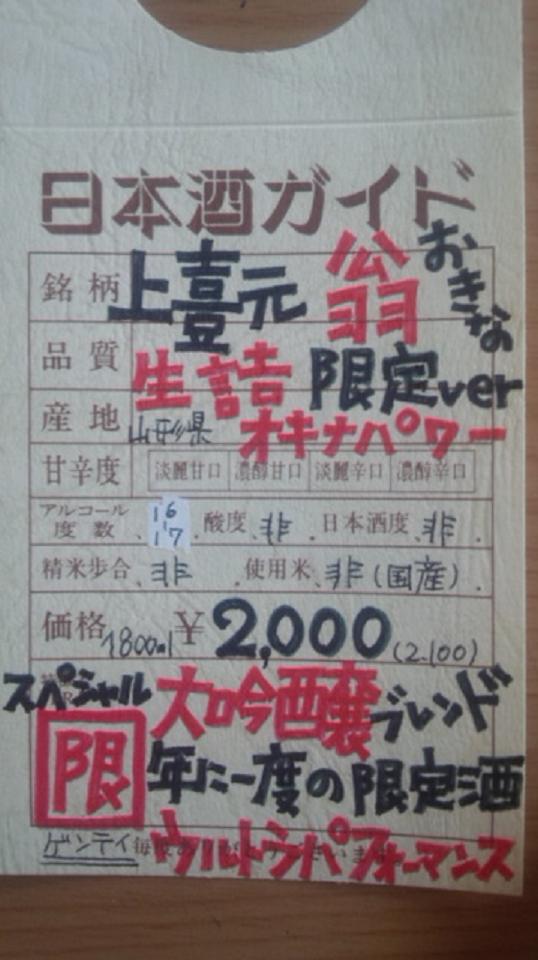 日本酒ガイド
銘柄 上喜元 翁 おきな
品質 生詰 限定ver
産地 山形県 オキナパワー
甘辛度 淡麗甘口 濃醇甘口 淡麗辛口 濃醇辛口
アルコール度数 16 17 酸度 非 日本酒度 非
精米歩合 非 使用米 非(国産)
価格 1800ml ¥2,000 (2.100)
スペシャル 大吟醸 ブレンド
限 年に一度の限定酒
ゲンテイ ウルトラパフォーマンス